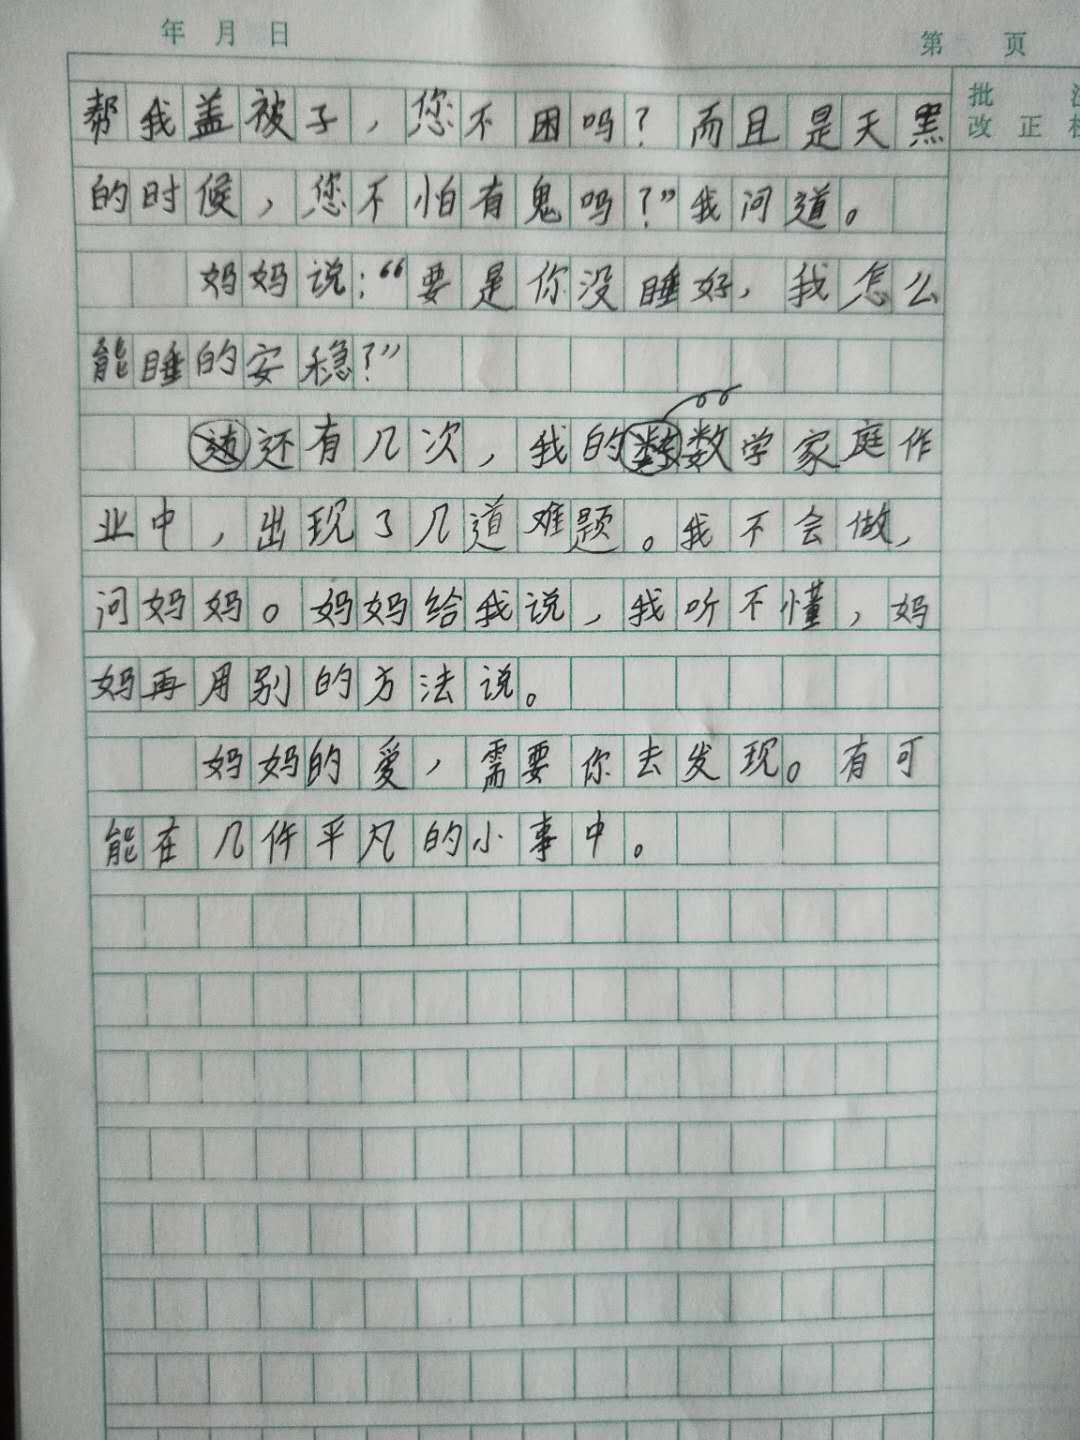 年 月 日
第 页
批
改 正
帮我盖被子，您不困吗？而且是天黑
的时候，您不怕有鬼吗？”我问道。
妈妈说：“要是你没睡好，我怎么
能睡的安稳？”
还有几次，我的数学家庭作
业中，出现了几道难题。我不会做，
问妈妈。妈妈给我说，我听不懂，妈
妈再用别的方法说。
妈妈的爱，需要你去发现。有可
能在几件平凡的小事中。